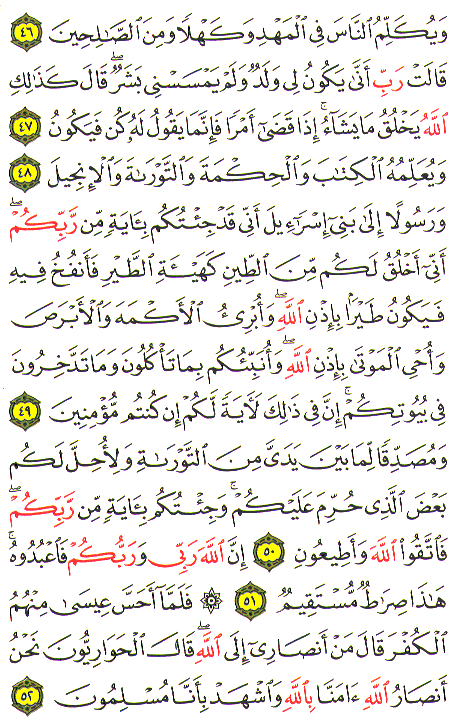 وَيُكَلِّمُ ٱلنَّاسَ فِى ٱلْمَهْدِ وَكَهْلًا وَمِنَ ٱلصَّٰلِحِينَ ٤٦
قَالَتْ رَبِّ أَنَّىٰ يَكُونُ لِى وَلَدٌ وَلَمْ يَمْسَسْنِى بَشَرٌ ۖ قَالَ كَذَٰلِكِ
ٱللَّهُ يَخْلُقُ مَا يَشَآءُ ۚ إِذَا قَضَىٰٓ أَمْرًا فَإِنَّمَا يَقُولُ لَهُۥ كُن فَيَكُونُ ٤٧
وَيُعَلِّمُهُ ٱلْكِتَٰبَ وَٱلْحِكْمَةَ وَٱلتَّوْرَىٰةَ وَٱلْإِنجِيلَ ٤٨
وَرَسُولًا إِلَىٰ بَنِىٓ إِسْرَٰٓءِيلَ أَنِّى قَدْ جِئْتُكُم بِـَٔايَةٍ مِّن رَّبِّكُمْ ۖ
أَنِّىٓ أَخْلُقُ لَكُم مِّنَ ٱلطِّينِ كَهَيْـَٔةِ ٱلطَّيْرِ فَأَنفُخُ فِيهِ
فَيَكُونُ طَيْرًۢا بِإِذْنِ ٱللَّهِ ۖ وَأُبْرِئُ ٱلْأَكْمَهَ وَٱلْأَبْرَصَ
وَأُحْىِ ٱلْمَوْتَىٰ بِإِذْنِ ٱللَّهِ ۖ وَأُنَبِّئُكُم بِمَا تَأْكُلُونَ وَمَا تَدَّخِرُونَ
فِى بُيُوتِكُمْ ۚ إِنَّ فِى ذَٰلِكَ لَـَٔايَةً لَّكُمْ إِن كُنتُم مُّؤْمِنِينَ ٤٩
وَمُصَدِّقًا لِّمَا بَيْنَ يَدَىَّ مِنَ ٱلتَّوْرَىٰةِ وَلِأُحِلَّ لَكُم
بَعْضَ ٱلَّذِى حُرِّمَ عَلَيْكُمْ ۚ وَجِئْتُكُم بِـَٔايَةٍ مِّن رَّبِّكُمْ ۖ
فَٱتَّقُوا۟ ٱللَّهَ وَأَطِيعُونِ ٥٠ إِنَّ ٱللَّهَ رَبِّى وَرَبُّكُمْ فَٱعْبُدُوهُ ۗ
هَٰذَا صِرَٰطٌ مُّسْتَقِيمٌ ٥١ ۞ فَلَمَّآ أَحَسَّ عِيسَىٰ مِنْهُمُ
ٱلْكُفْرَ قَالَ مَنْ أَنصَارِىٓ إِلَى ٱللَّهِ ۖ قَالَ ٱلْحَوَارِيُّونَ نَحْنُ
أَنصَارُ ٱللَّهِ ءَامَنَّا بِٱللَّهِ وَٱشْهَدْ بِأَنَّا مُسْلِمُونَ ٥٢